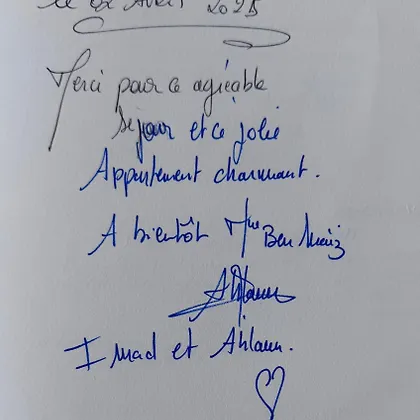 le 02 Avril 2025
Merci pour ce agréable
séjour et ce jolie
Appartement charmant.
A bientôt Mme Ben
Imad et Ahlam.